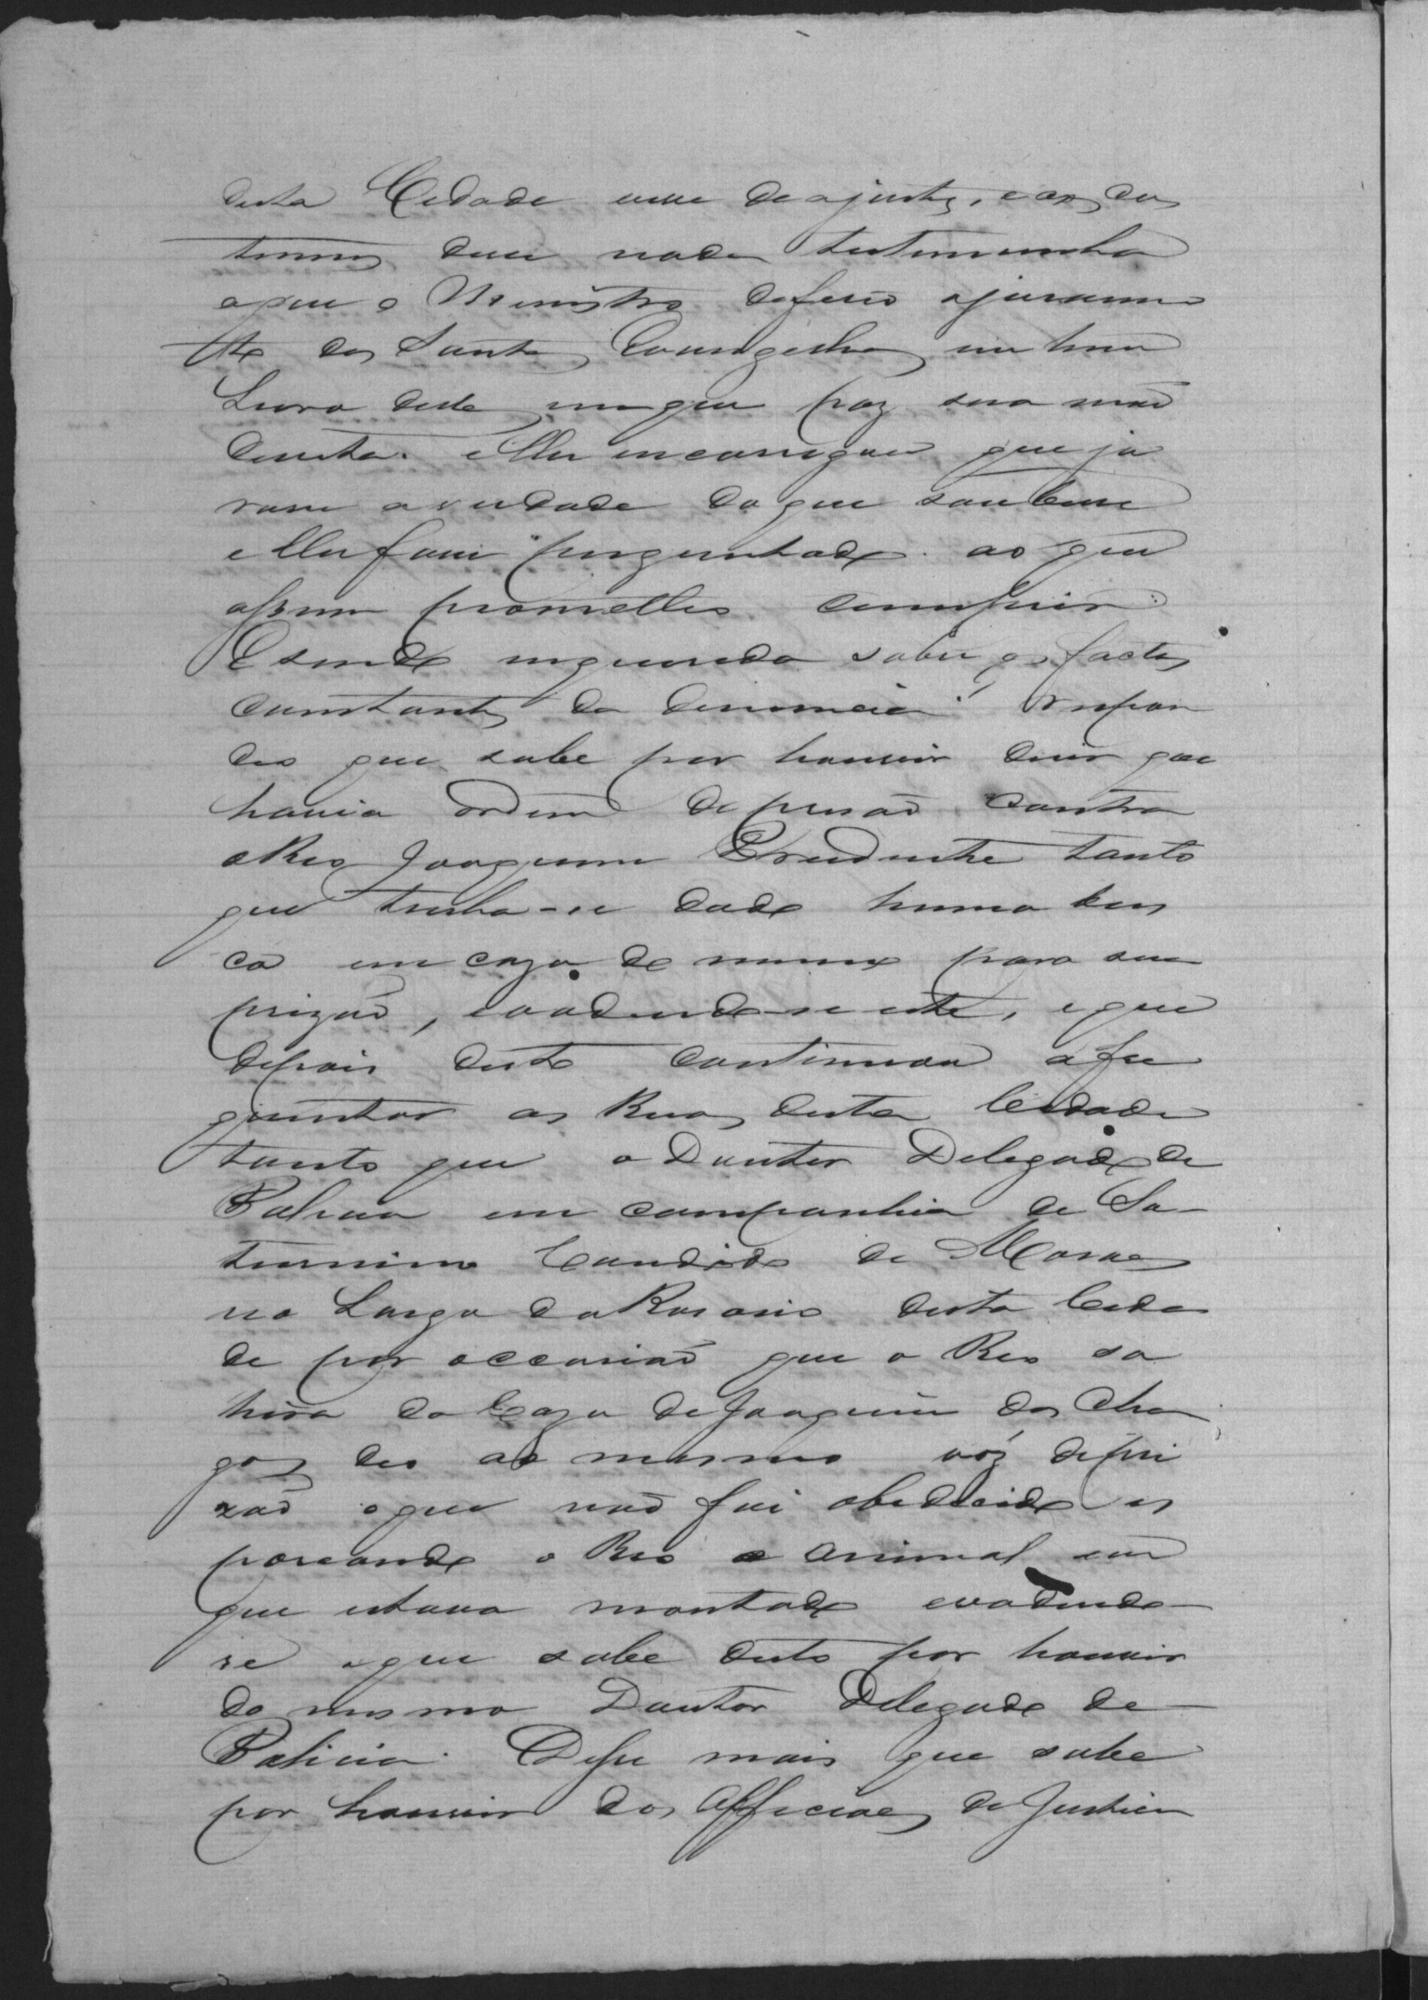 desta Cidade vive de ajustes, e aos cos
tumes disse nada testemunha
a que o Ministro deferio ojuramen
to dos Santos Evangelhos em hum
Livro delles em que poz sua mão
direita. e lhe encarregou que ju
rasse averdade do que soubesse
e lhe fosse perguntado. ao que
assim prometteo cumprir.
E sendo inquerida sobre os factos
constantes da denuncia! respon
deo que sabe por houvir dizer que
havia ordem de prisão contra
o Reo Joaquim Prudente tanto
que tinha-se dado huma bus
ca em caza de mesmo para sua
prizão, evadindo-se este, e que
depois disto continuou afre
quentar as Ruas desta Cidade
tanto que o Doutor Delegado de
Policia em companhia de Sa-
turnino Candido de Moraes
no Largo do Rosario desta Cida
de por occasião que o Reo sa
hira da Caza de Joaquim das Cha
gas deo ao mesmo vóz de pri
zão o que não foi obedecido es
poreando o Reo o animal em
que estava montado evadindo-
se o que sabe disto por houvir
do mesmo Doutor Delegado de
Policia. Disse mais que sabe
por houvir dos Officiaes de Justiça